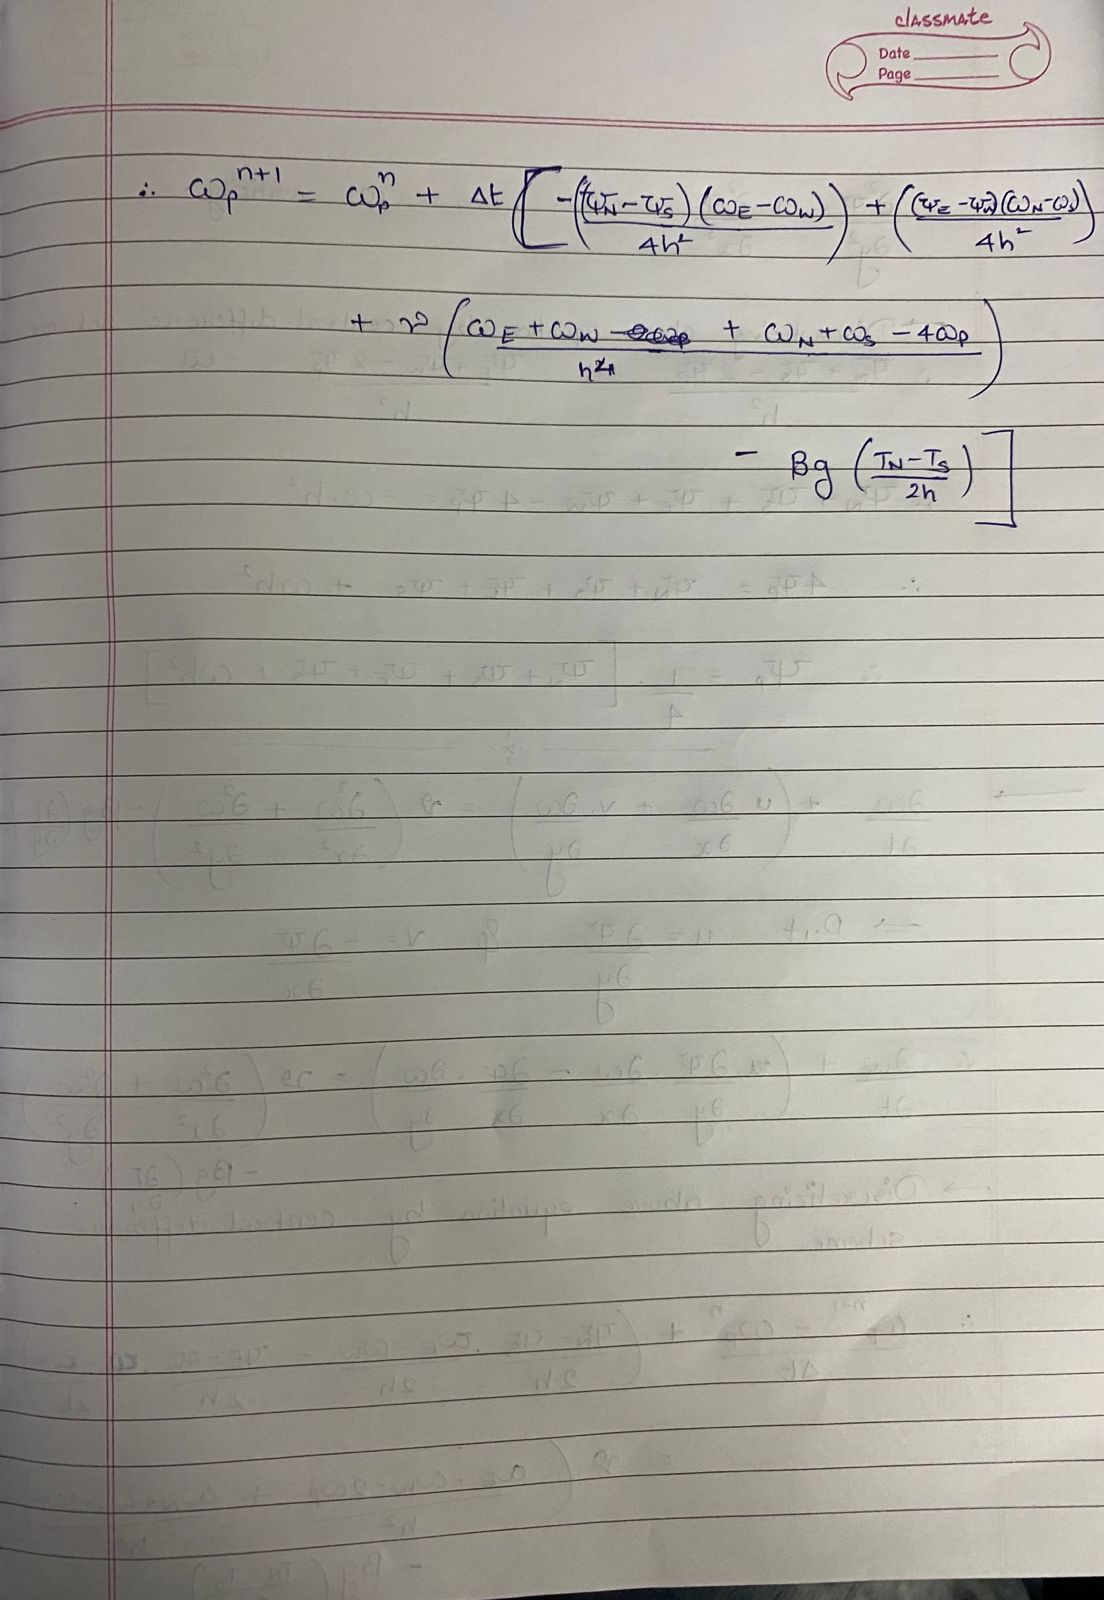 classmate
Date
Page
∴ ω_P^{n+1} = ω_P^n + Δt [ -((Ψ_N - Ψ_S)(ω_E - ω_W) / 4h²) + ((Ψ_E - Ψ_W)(ω_N - ω_S) / 4h²)
+ ν ( (ω_E + ω_W + ω_N + ω_S - 4ω_P) / h² )
- Bg ( (T_N - T_S) / 2h ) ]